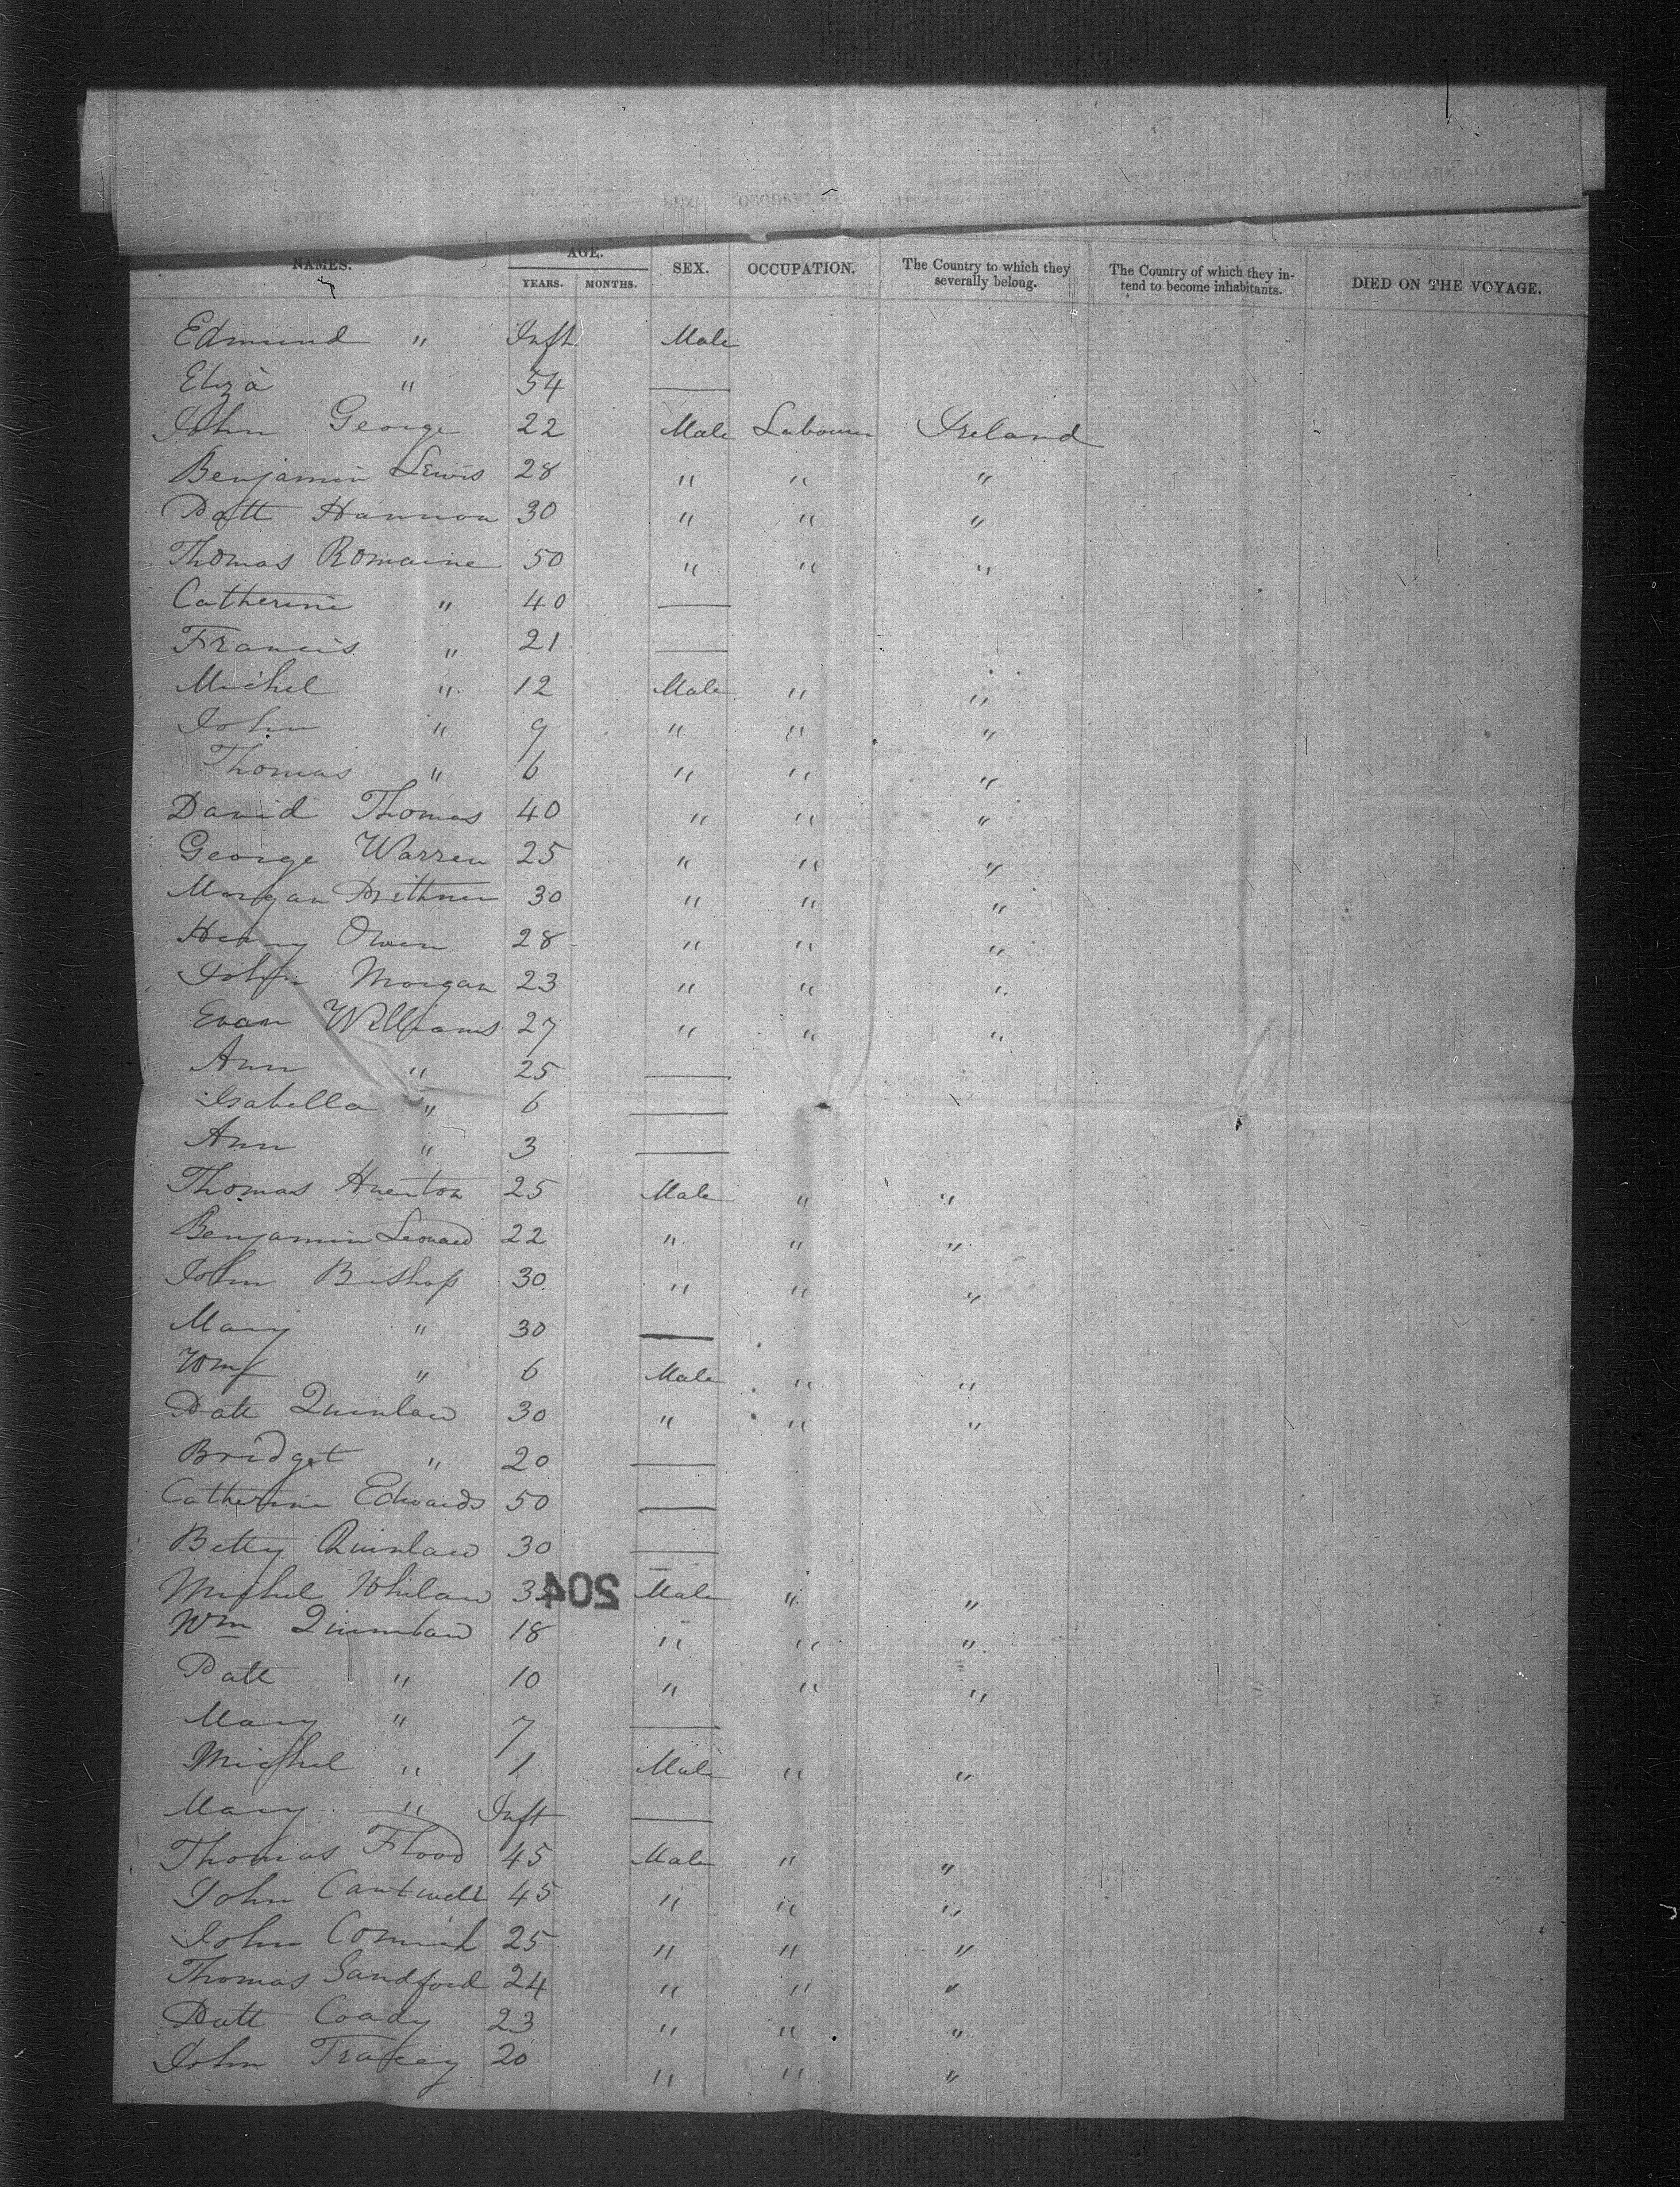 NAMES. AGE. YEARS. MONTHS. SEX. OCCUPATION. The Country to which they severally belong. The Country of which they intend to become inhabitants. DIED ON THE VOYAGE.
Edmund " Inft Male
Eliza " 54 —
John George 22 Male Labourer Ireland
Benjamin Lewis 28 " " "
Patt Hannon 30 " " "
Thomas Romaine 50 " " "
Catherine " 40 —
Francis " 21 —
Michel " 12 Male " "
John " 9 " " "
Thomas " 6 " " "
David Thomas 40 " " "
George Warren 25 " " "
Morgan 30 " " "
Henry Owen 28 " " "
John Morgan 23 " " "
Evan Williams 27 " " "
Ann " 25 —
Isabella " 6 —
Ann " 3 —
Thomas 25 Male " "
Benjamin Leonard 22 " " "
John Bishop 30 " " "
Mary " 30 —
Wm " 6 Male " "
Patt Quinlan 30 " " "
Bridget " 20 —
Catherine Edwards 50 —
Betty Quinlan 30 —
Michel Whelan Male " "
204
Wm Quinlan 18 " " "
Patt " 10 " " "
Mary " 7 —
Michel " 1 Male " "
Mary " Inft —
Thomas Flood 45 Male " "
John Cantwell 45 " " "
John 25 " " "
Thomas Sandford 24 " " "
Patt Coady 23 " " "
John Tracey 20 " " "